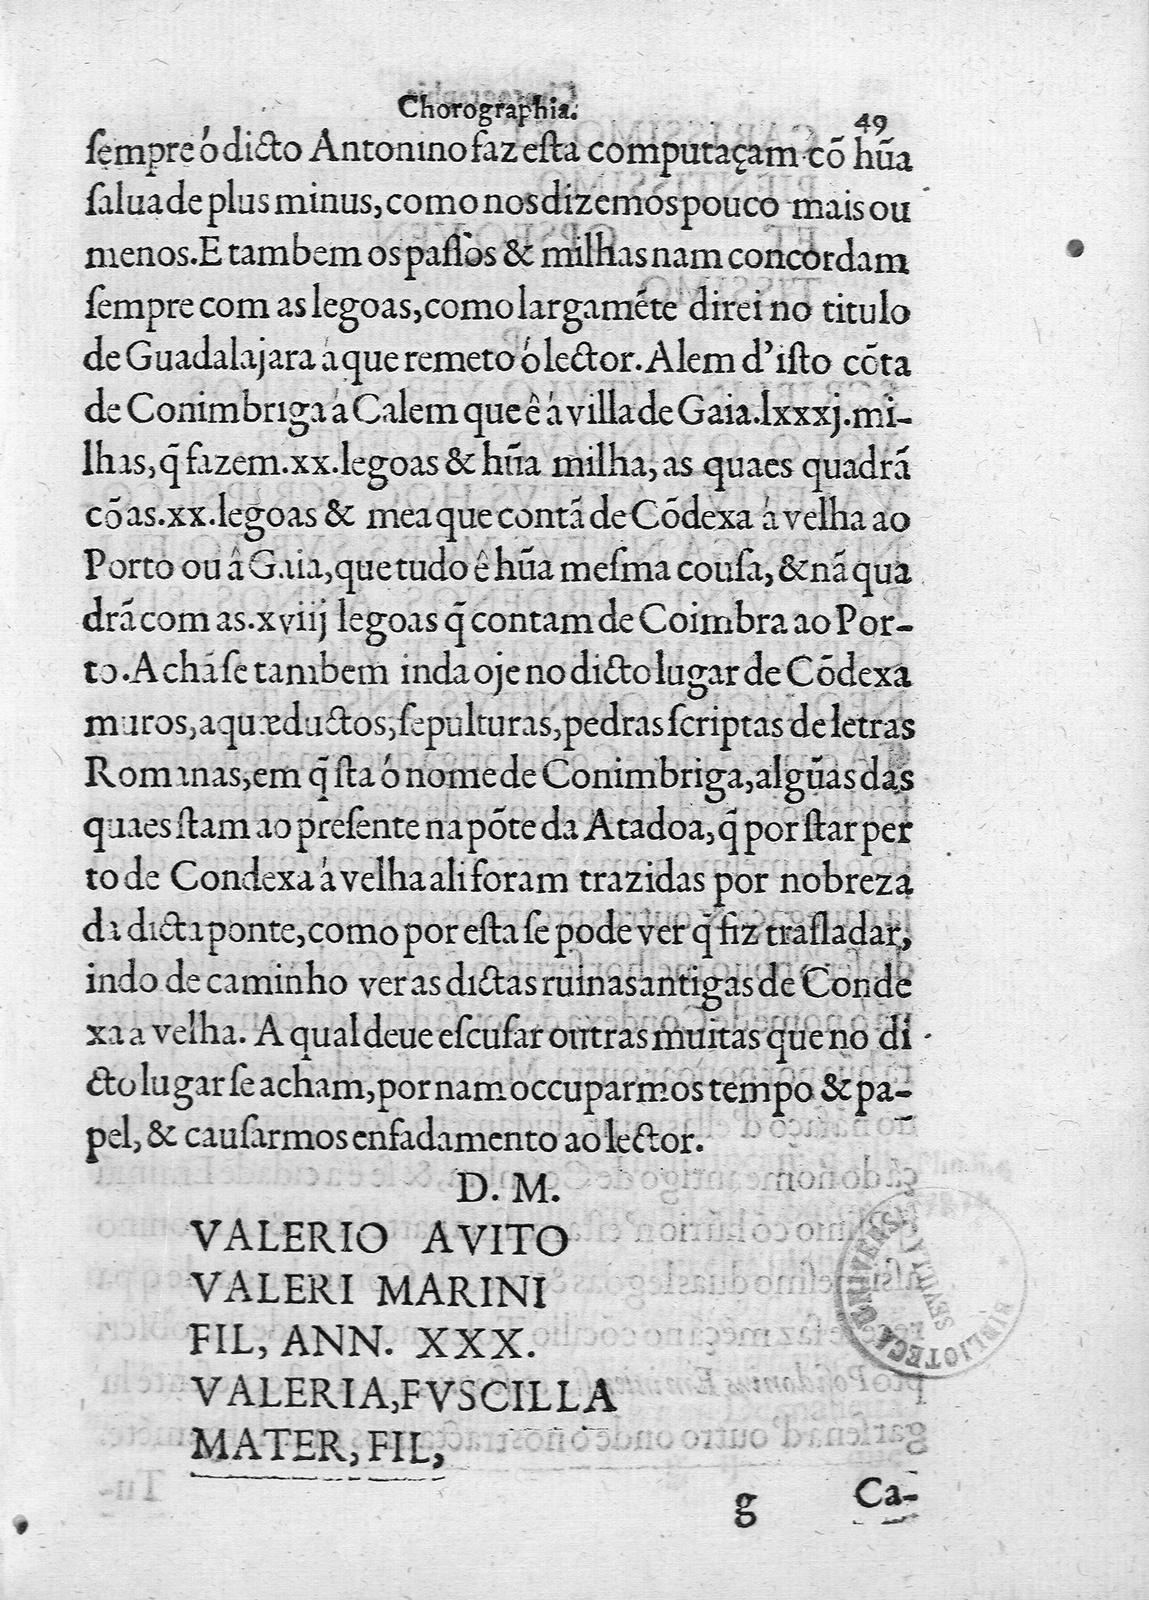 Chorographia.
49
ſempre ó dicto Antonino faz eſta computaçam cõ hũa
ſalua de plus minus, como nos dizemos pouco mais ou
menos. E tambem os paſſos & milhas nam concordam
ſempre com as legoas, como largamẽte direi no titulo
de Guadalajara á que remeto ó lector. Alem d'iſto cõta
de Conimbriga á Calem que ê á villa de Gaia. lxxxj. mi-
lhas, q̃ fazem. xx. legoas & hũa milha, as quaes quadrã
cõ as. xx. legoas & mea que contã de Cõdexa á velha ao
Porto ou â Gaia, que tudo ê hũa meſma couſa, & nã qua
drã com as. xviij legoas q̃ contam de Coimbra ao Por-
to. Achãſe tambem inda oje no dicto lugar de Cõdexa
muros, aquæductos, ſepulturas, pedras ſcriptas de letras
Romanas, em q̃ ſta ó nome de Conimbriga, algũas das
quaes ſtam ao preſente na põte da Atadoa, q̃ por ſtar per
to de Condexa á velha ali foram trazidas por nobreza
da dicta ponte, como por eſta ſe pode ver q̃ fiz traſladar,
indo de caminho ver as dictas ruinas antigas de Conde
xa a velha. A qual deue eſcuſar outras muitas que no di
cto lugar ſe acham, por nam occuparmos tempo & pa-
pel, & cauſarmos enfadamento ao lector.
D. M.
VALERIO AVITO
VALERI MARINI
FIL, ANN. XXX.
VALERIA, FVSCILLA
MATER, FIL,
g
Ca-
BIBLIOTECA UNIVERSITARIA
SEVILLA